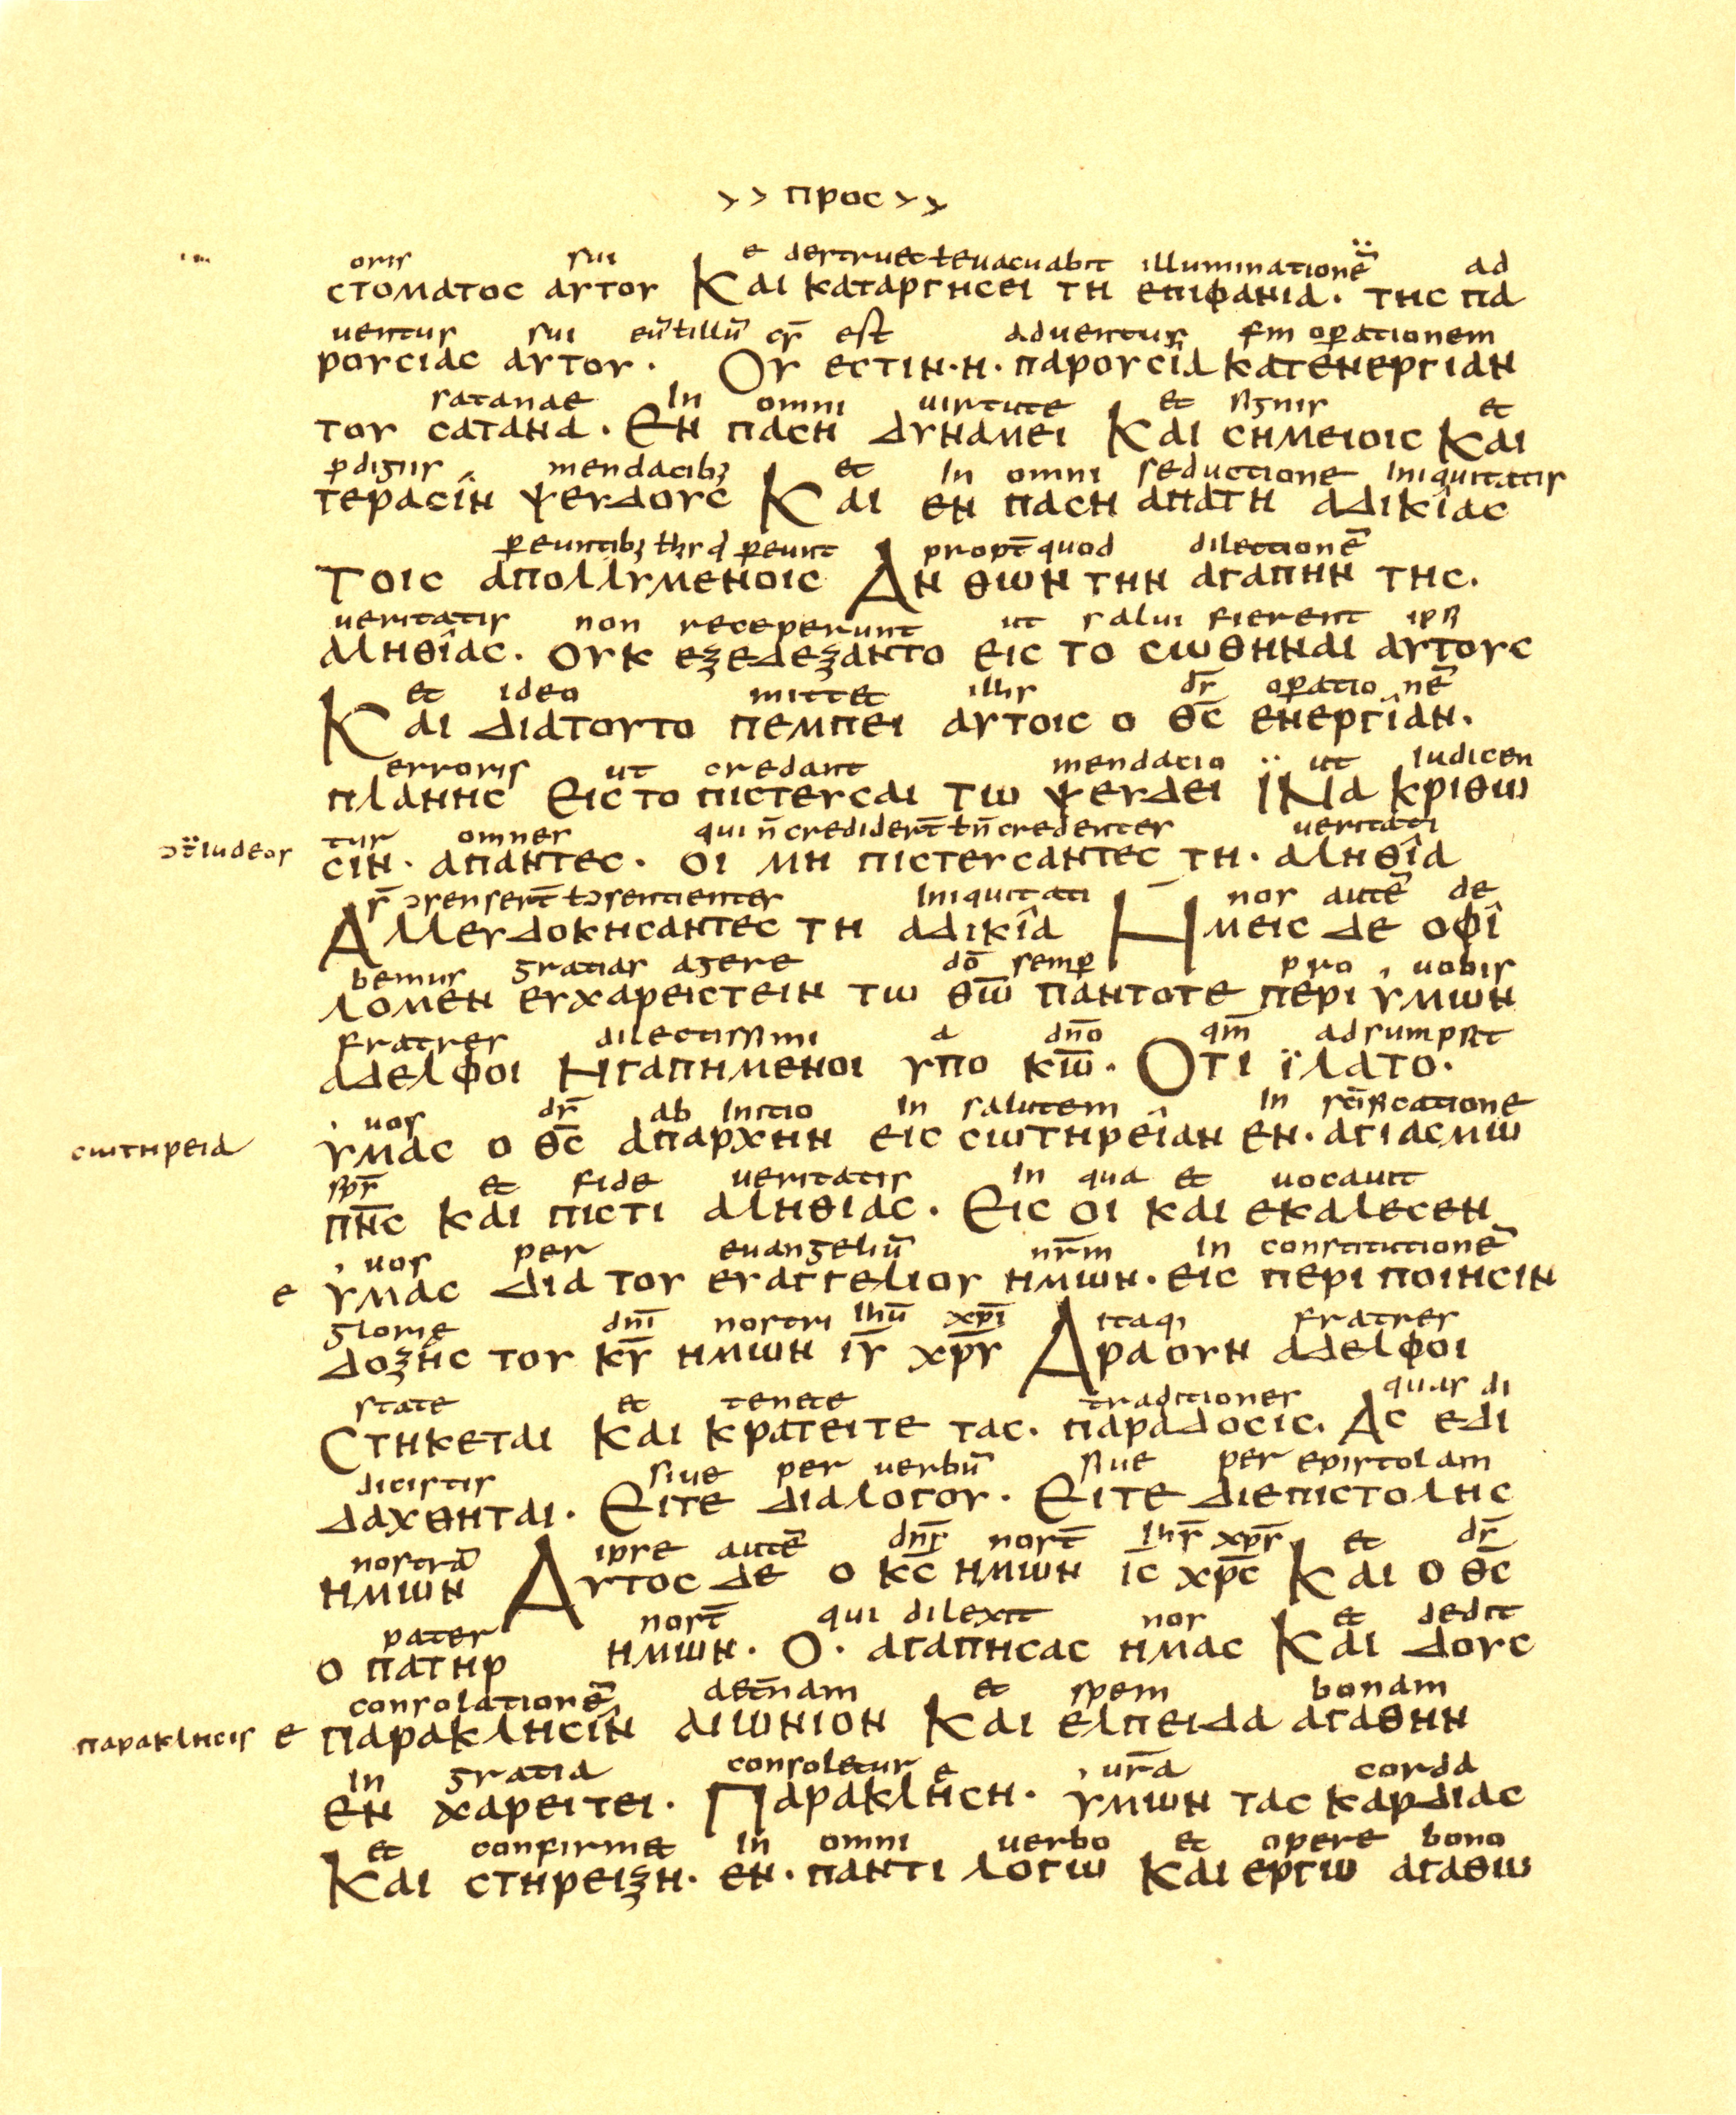 >> προς >>
oris sui e destruet ł euacuabit illuminationē ad
στοματος αυτου Και καταργησει τη επιφανια· της πα
uentus sui est aduentus operationem
ρουσιας αυτου· Ου εστιν·η· παρουσια κατενεργιαν
satanae In omni uirtute et signis et
του σατανα· Εν παση δυναμει Και σημειοις Και
pdigiis mendacibꝫ et In omni seductione Iniquitatis
τερασιν ψευδους Και εν παση απατη αδικιας
propt̄ quod dilectionē
Τοις απολλυμενοις Αν θων την αγαπην της·
ueritatis non receperunt ut salui fierent ipsi
αληθιας· ουκ εξεδεξαντο εις το σωθηναι αυτους
et ideo mittet illis dr̄ opatio nē
Και διατουτο πεμπει αυτοις ο θ̄ς̄ ενεργιαν·
erroris ut credant mendacio ut Iudicen
πλανης Εις το πιστευσαι τω ψευδει ϊνα κριθω
ↄt̄ iudeos tur omnes qui n̄ credidert̄ ł n̄ credentes ueritati
σιν· απαντες· οι μη πιστευσαντες τη· αληθια
s̄ ↄsensert̄ ł ↄsentientes Iniquitati nos autē de
Αλλευδοκησαντες τη αδικια Ημεις δε οφι
bemus gratias agere dō semp pro uobis
λομεν ευχαρειστειν τω θ̄ω̄ παντοτε περι υμων
fratres dilectissimi a dn̄o qm̄ adsumpsit
αδελφοι Ηγαπημενοι υπο κ̄ω̄· Οτι ϊλατο·
uos dr̄ ab Initio In salutem In sc̄ificatione
σωτηρεια υμας ο θ̄ς̄ απαρχην εις σωτηρειαν εν· αγιασμω
spr̄ et fide ueritatis In qua et uocauit
π̄ν̄ς̄ και πιστι αληθιας· Εις οι και εκαλεσεν
uos per euangeliū nr̄m In constitutionē
e υμας δια του ευαγγελιου ημων· εις περι ποιησιν
glorie dn̄i nostri Ihū xp̄i Itaqi fratres
δοξης του κ̄ῡ ημων ῑῡ χ̄ρ̄ῡ Αρα ουν αδελφοι
state et tenete traditiones quas di
Στηκεται και κρατειτε τας· παραδοσις· Ας εδι
dicistis siue per uerbū siue per epistolam
δαχθηται· Ειτε διαλογου· Ειτε διεπιστολης
nostrā ipse autē dn̄r nost̄ Ihr̄ xpr̄ et dr̄
ημων Αυτος δε ο κ̄ς̄ ημων ῑς̄ χ̄ρ̄ς̄ Και ο θ̄ς̄
pater nost̄ qui dilexit nos et dedit
ο πατηρ ημων· Ο· αγαπησας ημας Και δους
consolationē aet̄nam et spem bonam
παρακλησις e παρακλησιν αιωνιον Και ελπειδα αγαθην
In gratia consoletur e ur̄a corda
εν χαρειτει· Παρακληση· υμων τας καρδιας
et confirmet In omni uerbo et opere bono
Και στηρειξη· εν· παντι λογω Και εργω αγαθω